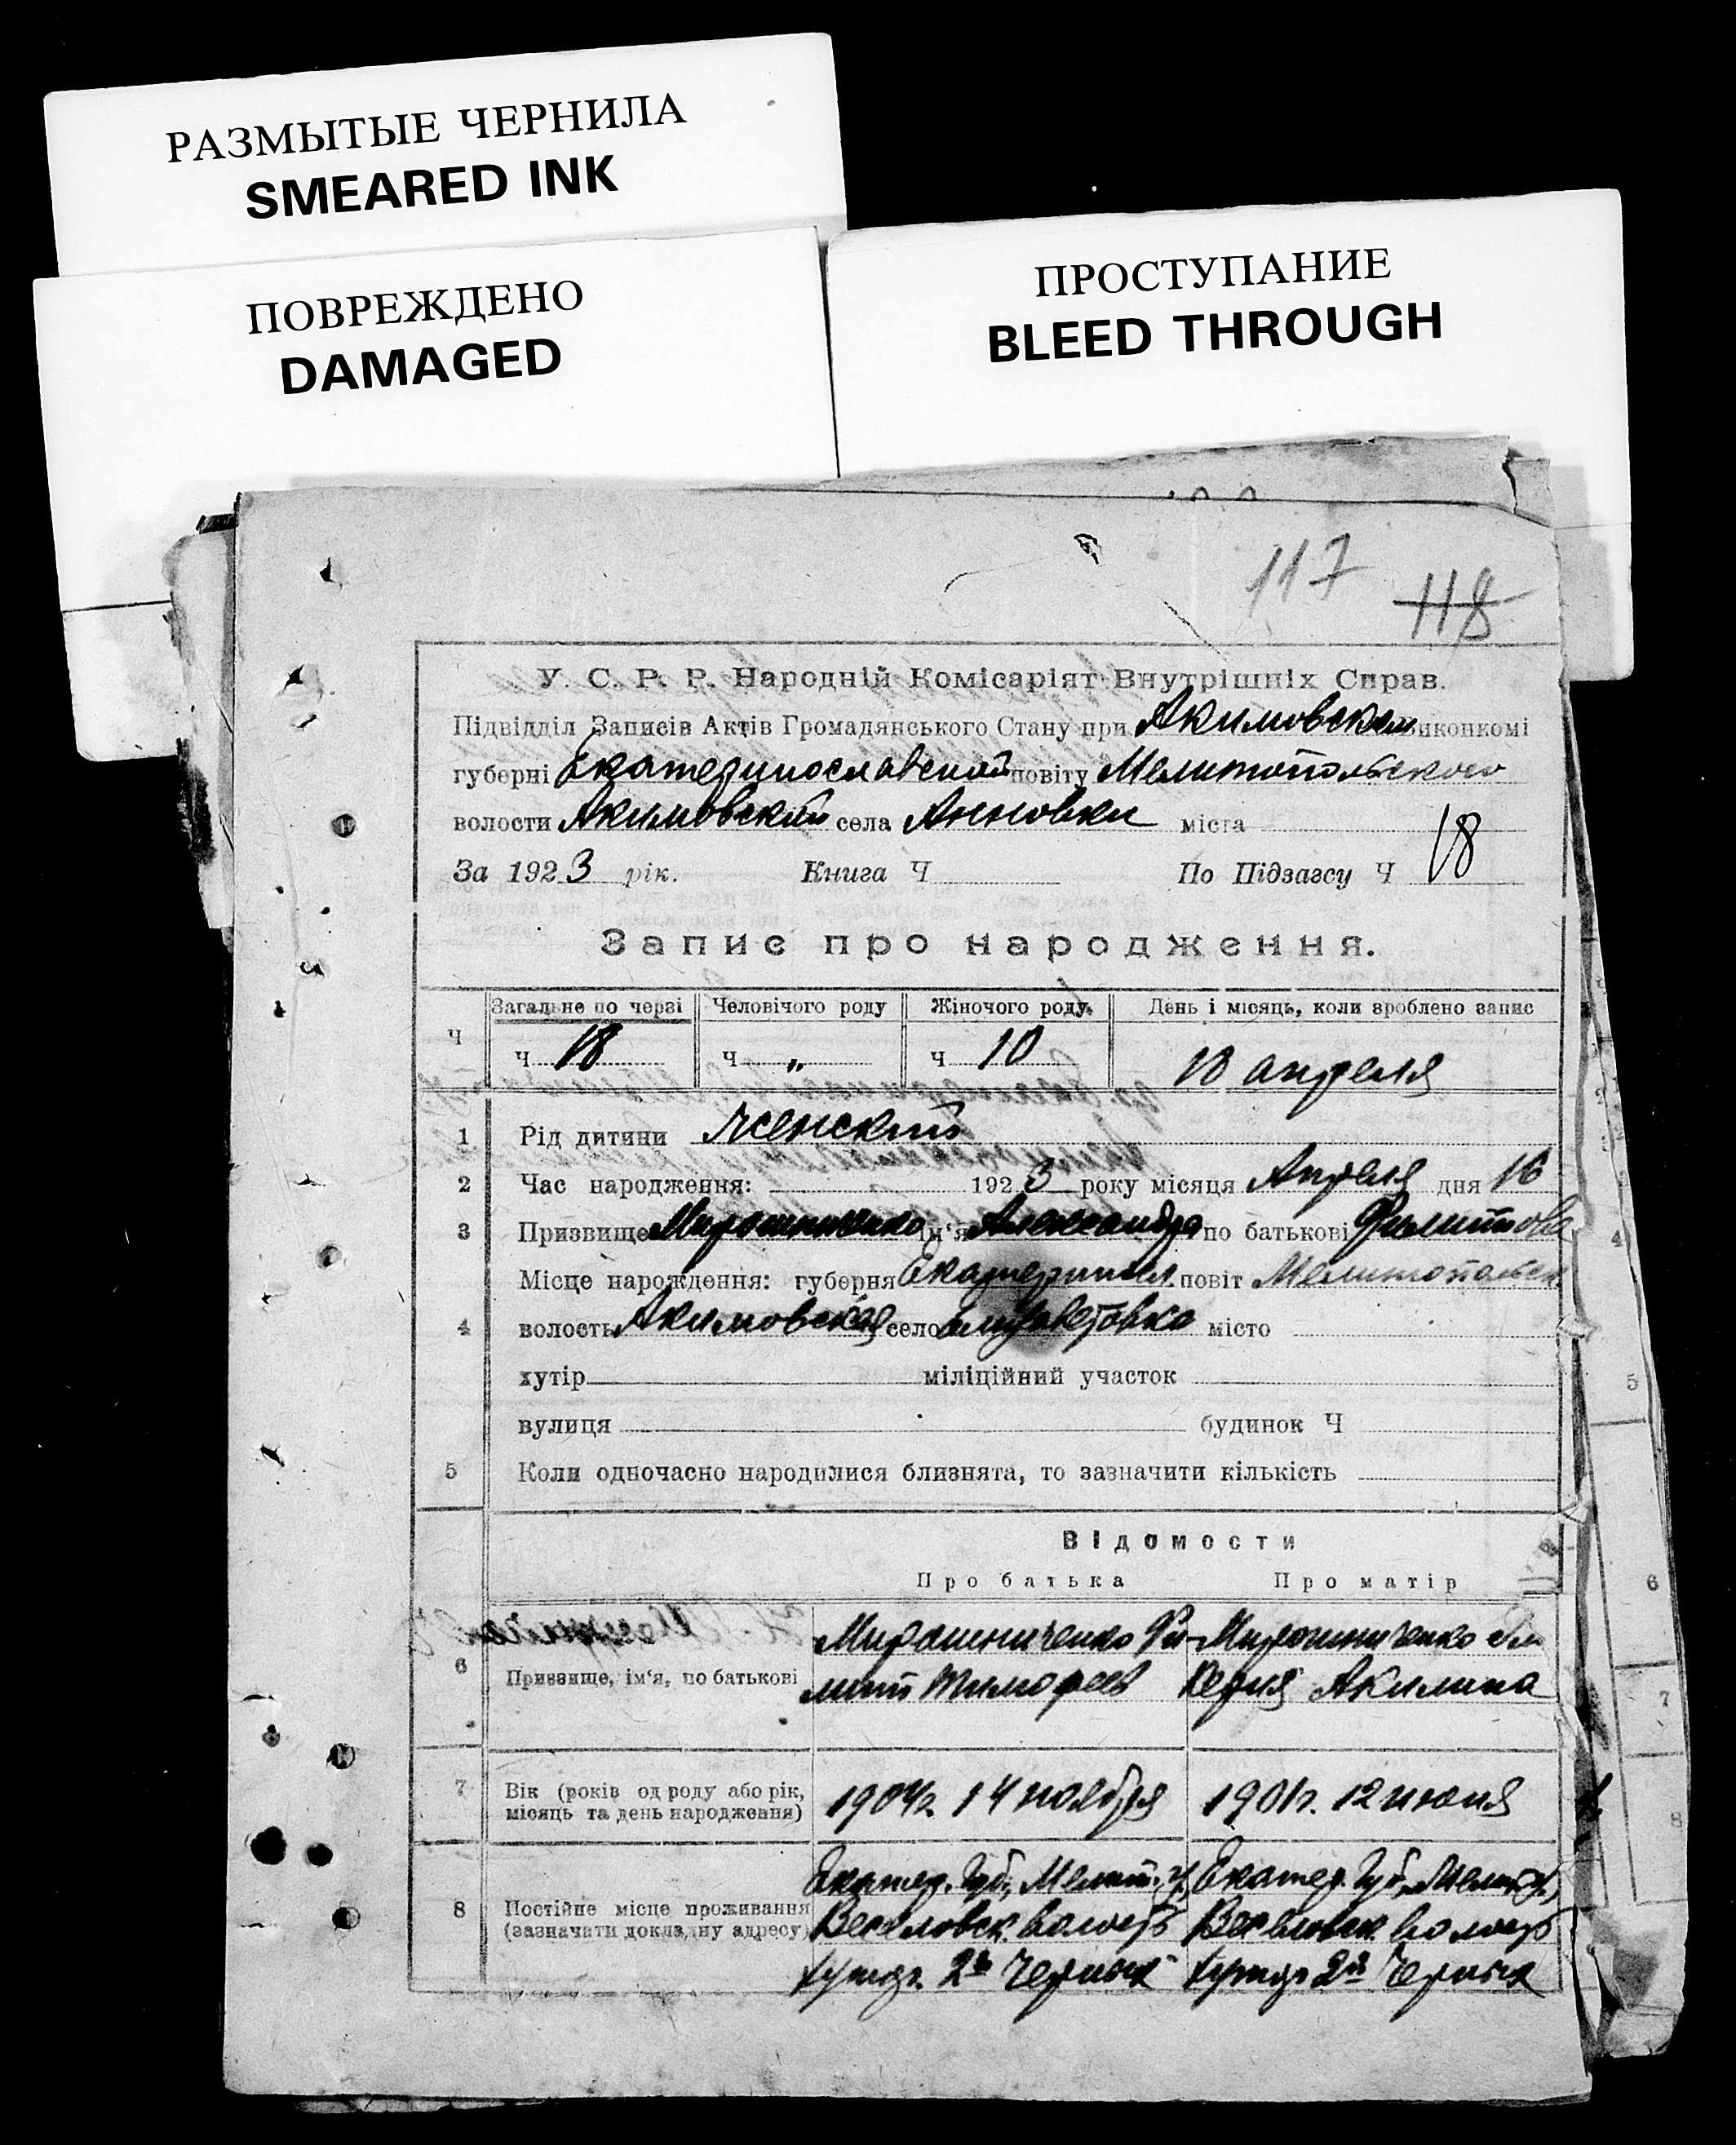 РАЗМЫТЫЕ ЧЕРНИЛА
SMEARED INK
ПОВРЕЖДЕНО
DAMAGED
ПРОСТУПАНИЕ
BLEED THROUGH
117
118
У. С. Р. Р. Народній Комісаріят Внутрішніх Справ.
Підвідділ Записів Актів Громадянського Стану при Акимовском виконкомі
губерні Екатеринославской повіту Мелитопольского
волости Акимовской села Анновки міста
За 1923 рік. Книга Ч По Підзагсу Ч 18
Запис про народження.
Ч Загальне по черзі Человічого роду Жіночого роду День і місяць, коли зроблено запис
ч 18 ч „ ч 10 18 апреля
1 Рід дитини женский
2 Час народження: 1923 року місяця Апреля дня 16
3 Призвище Мирошниченко ім'я Александра по батькові Филиппова
Місце народження: губерня Екатеринил. повіт Мелитопольск.
4 волость Акимовская село Елизаветовка місто
хутір міліційний участок
вулиця будинок Ч
5 Коли одночасно народилися близнята, то зазначити кількість
Відомости
Про батька Про матір
6 Призвище, ім'я, по батькові
Мирошниченко Фи- Мирошниченко
липп Тимофеев Акилина
7 Вік (років од роду або рік, місяць та день народження)
1904г. 14 ноября 1901г. 12 июня
8 Постійне місце проживання (зазначити докладну адресу)
Екатер. Губ., Мелит. у, Екатер. Губ, Мелит у,
Веселовск. волость Веселовск. волость
хутор 2й Черных хутор 2й Черных
4
5
6
7
8